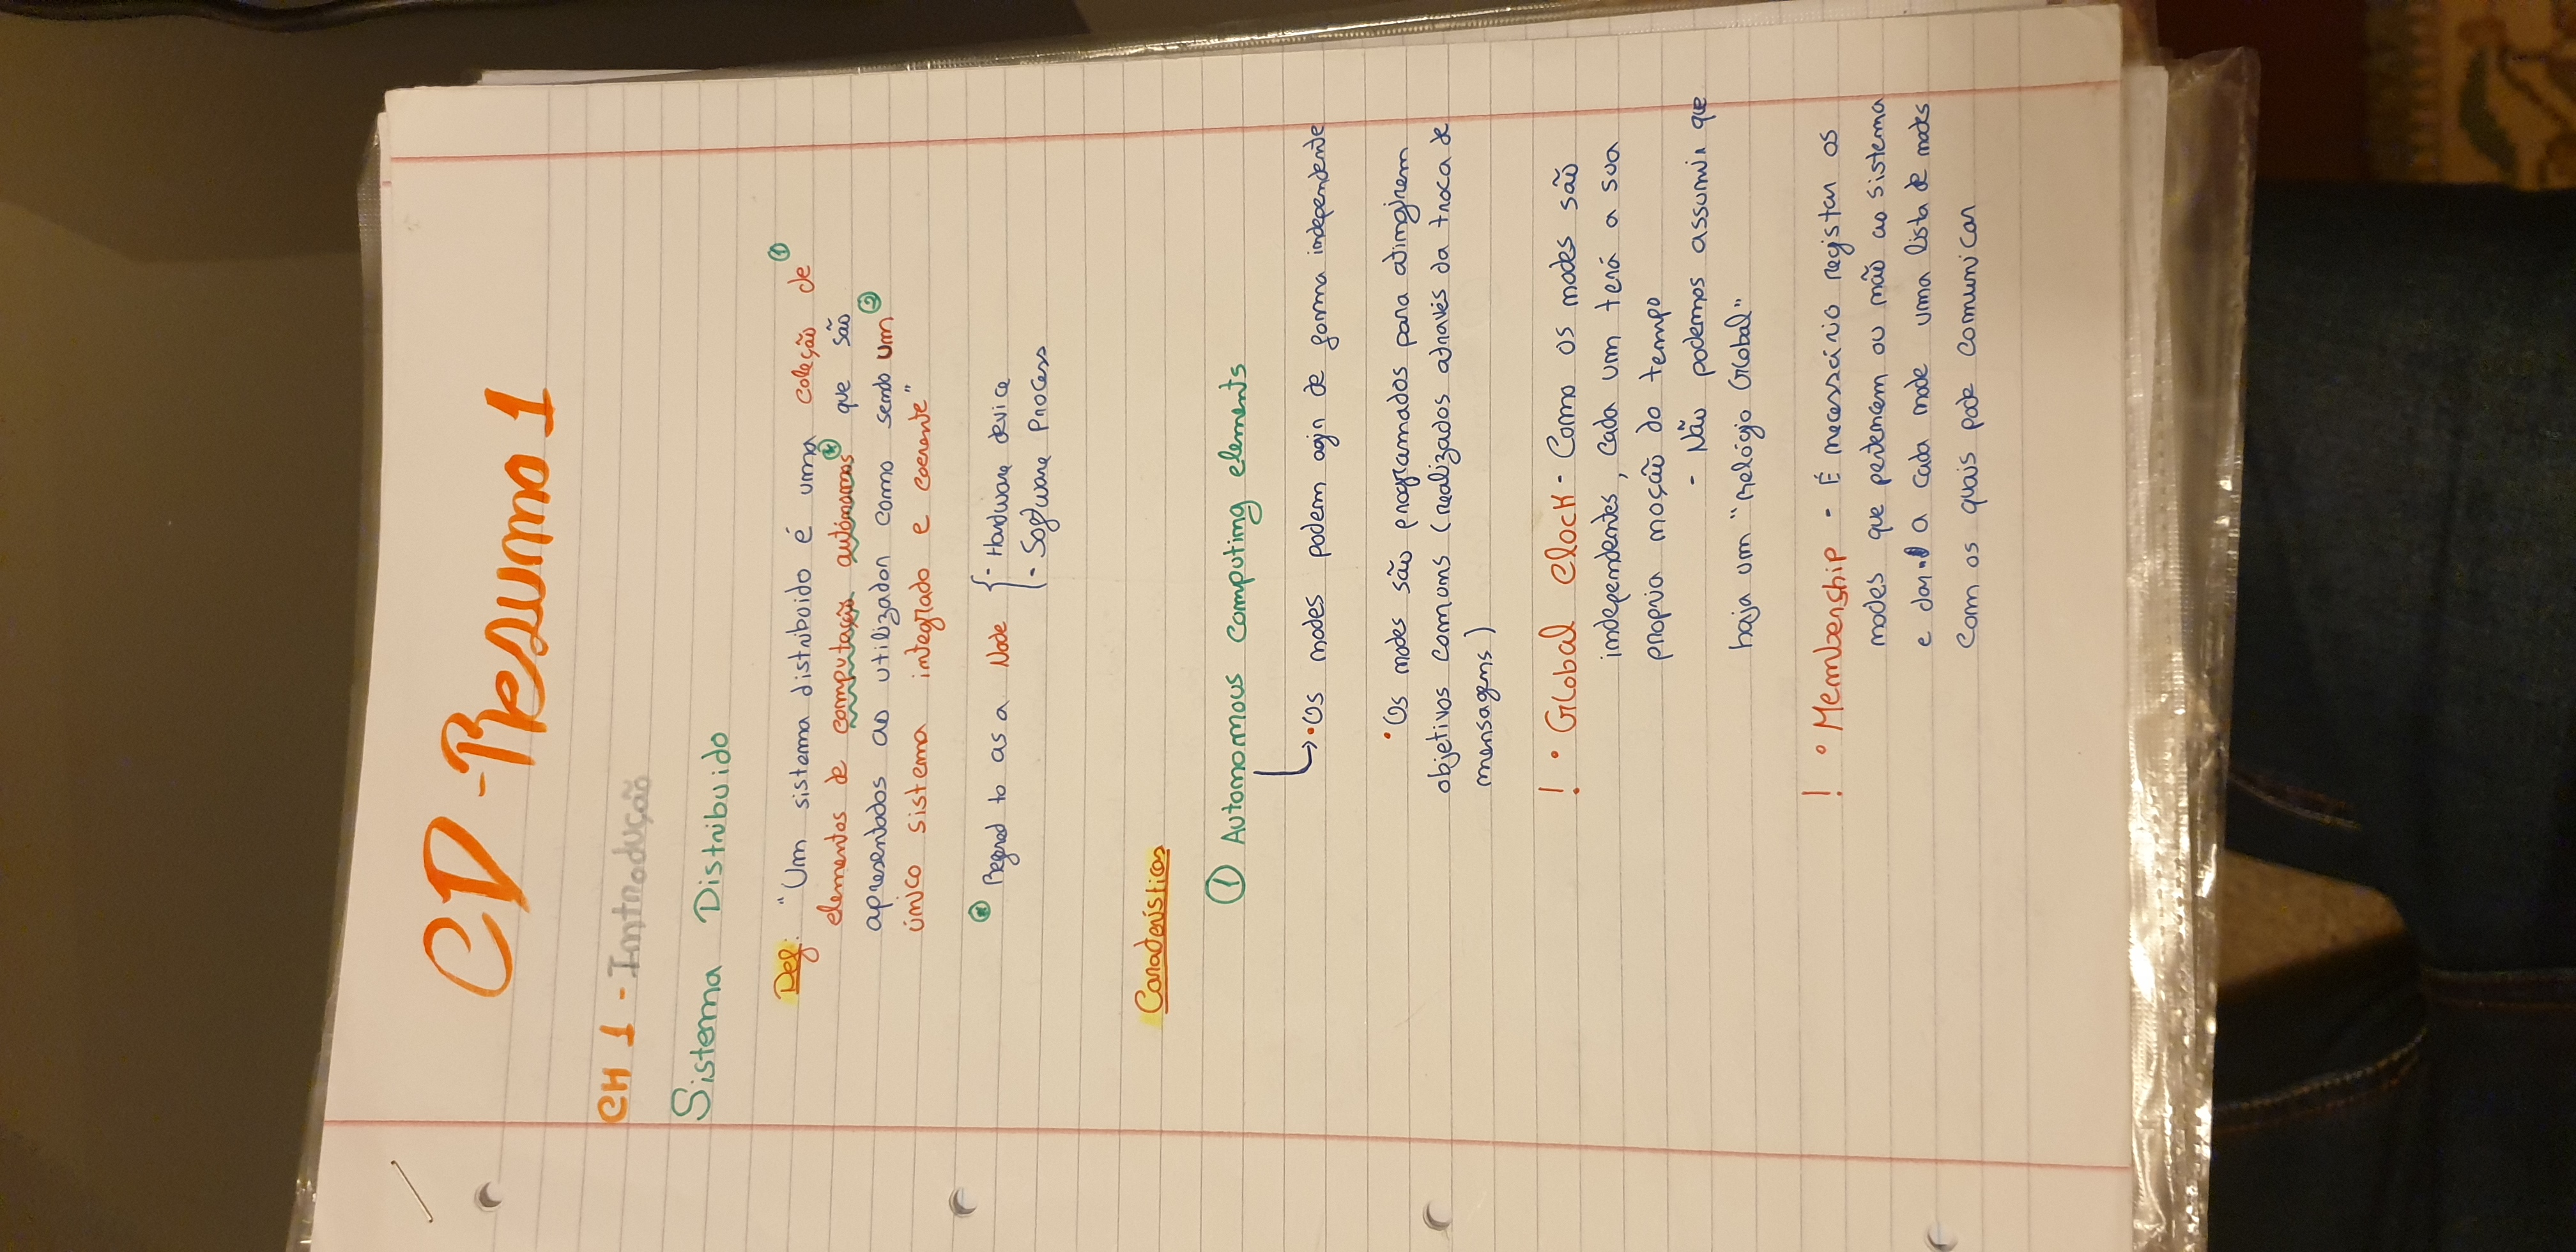 CD - Resumo 1
CH 1 - Introdução
Sistema Distribuido
Def: "Um sistema distribuido é uma coleção de ①
elementos de computação autónomos * que são
apresentados ao utilizador como sendo um ②
único sistema integrado e coerente"
* Refered to as a Node { - Hardware device
- Software Process
Características
① Autonomous computing elements
↳ • Os nodes podem agir de forma independente
• Os nodes são programados para atingirem
objetivos comuns (realizados através da troca de
mensagens)
! • Global Clock - Como os nodes são
independentes, cada um terá a sua
propria noção do tempo
- Não podemos assumir que
haja um "Relógio Global"
! • Membership - É necessário registar os
nodes que pertencem ou não ao sistema
e dar a cada node uma lista de nodes
com os quais pode comunicar